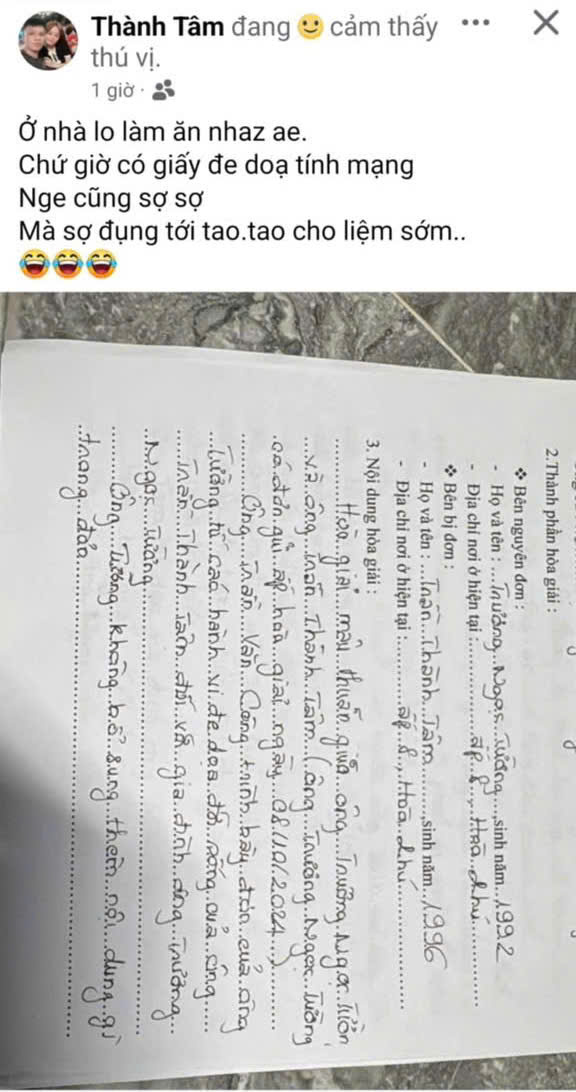 Thành Tâm đang 🙂 cảm thấy
thú vị.
1 giờ ·
Ở nhà lo làm ăn nhaz ae.
Chứ giờ có giấy đe doạ tính mạng
Nge cũng sợ sợ
Mà sợ đụng tới tao.tao cho liệm sớm..
😂😂😂
2.Thành phần hòa giải :
❖ Bên nguyên đơn :
- Họ và tên : ...Trương Ngọc Tưởng...sinh năm..1992
- Địa chỉ nơi ở hiện tại :.........ấp 8, Hòa Phú.........
❖ Bên bị đơn :
- Họ và tên : ...Trần Thành Tâm.........sinh năm...1996
- Địa chỉ nơi ở hiện tại :.........ấp 8, Hoà Phú.........
3. Nội dung hòa giải :
Hòa giải mâu thuẫn giữa ông Trương Ngọc
và ông Trần Thành Tâm (ông Trương Ngọc Tưởng
có đơn gửi ấp hòa giải ngày 08/10/2024)
Ông Trần Văn Công trình bày đơn của ông
Tưởng từ các hành vi đe dọa của ông
Trần Thành Tâm đối với gia đình ông Trương
Ngọc Tưởng
Ông Tưởng không bổ sung thêm nội dung gì
trong đơn